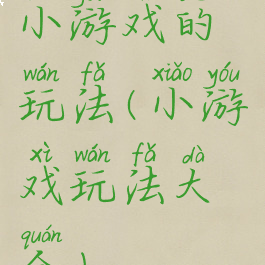 小游戏的
wán fǎ xiǎo yóu
玩法(小游
xì wán fǎ dà
戏玩法大
quán
全)